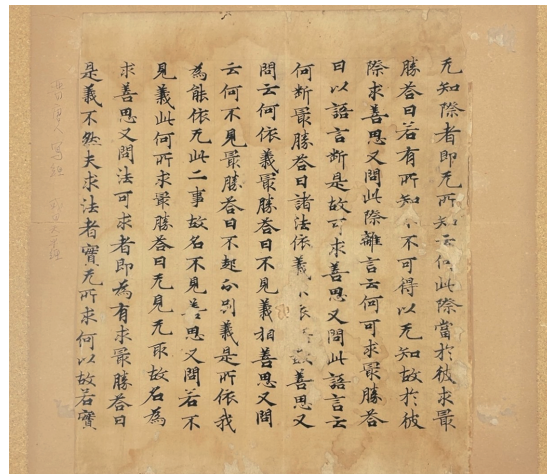 无知際者即无所知云何此際當於彼求㝡
勝荅曰若有所知不可得以无知故於彼
際求善思又問此際離言云何可求㝡勝荅
曰以語言断是故可求善思又問此語言云
何断㝡勝荅曰諸法依義不依善思又
問云何依義㝡勝荅曰不見義相善思又問
云何不見㝡勝荅曰不起分別義是所依我
為能依无此二事故名不見善思又問若不
見義此何所求㝡勝荅曰无見无取故名為
求善思又問法可求者即為有求㝡勝荅曰
是義不然夫求法者實无所求何以故若實